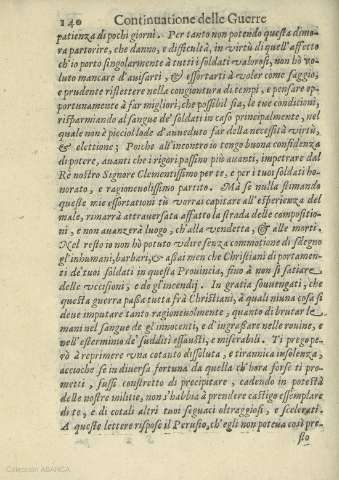 140 Continuatione delle Guerre
patienza di pochi giorni. Per tanto non potendo questa dimo-
ra partorire, che danno, e difficoltà, in virtù di quell'affetto
ch'io porto singolarmente à tutti i soldati valorosi, non hò vo-
luto mancare d'auisarti, & essortarti à voler come saggio,
e prudente riflettere nella congiontura di tempi, e pensare op-
portunamente à far migliori, che possibil sia, le tue condicioni,
risparmiando al sangue de' soldati in caso principalmente, nel
quale non è picciol lode d'aueduto far della necessità virtù,
& elettione; Poiche all'incontro io tengo buona confidenza
di potere, auanti che i rigori passino più auanti, impetrare dal
Rè nostro Signore Clementissimo per te, e per i tuoi soldati ho-
norato, e ragioneuolissimo partito. Mà se nulla stimando
queste mie essortationi tù vorrai capitare all'esperienza del
male, rimarrà attrauersata affatto la strada delle compositio-
ni, e non auanzerà luogo, ch'alla vendetta, & alle morti.
Nel resto io non hò potuto vdire senza commotione di sdegno
gl'inhumani, barbari, & assai men che Christiani di portamen-
ti de' tuoi soldati in questa Prouincia, fino à non si satiare
delle vccisioni, e de gl'incendij. In gratia souuengati, che
questa guerra passa tutta frà Christiani, à quali niuna cosa si
deue imputare tanto ragioneuolmente, quanto di brutar le
mani nel sangue de gl'innocenti, e d'ingrassare nelle rouine, e
nell'esterminio de' sudditi essausti, e miserabili. Ti prego pe-
rò à reprimere vna cotanto dissoluta, e tirannica insolenza,
accioche se in diuersa fortuna da quella ch'hora forse ti pro-
metti, fussi constretto di precipitare, cadendo in potestà
delle nostre militie, non s'habbia à prendere castigo essemplare
di te, e di cotali altri tuoi seguaci oltraggiosi, e scelerati.
A queste lettere rispose il Perusio, ch'egli non poteua così pre-
sto
Colección ABANCA